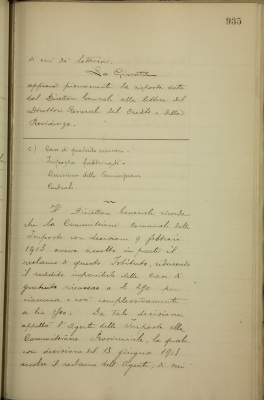 935
e cui dà lettura.
La Giunta
approva pienamente la risposta data
dal Direttore Generale alla lettera del
Direttore Generale del Credito e della
Previdenza.
c) Case di
Imposta fabbricati -
Decisione della Commissione
Centrale
Il Direttore Generale ricorda
che la Commissione Comunale delle
Imposte con decisione 9 febbraio
1913 aveva accolto in parte il
reclamo di questo Istituto, riducendo
il reddito imponibile delle case di
a £ 270 per
ciascuna e così complessivamente
a £ Da tale decisione
appellò l'Agente delle Imposte alla
Commissione Provinciale, la quale
con decisione del 13 giugno 1913
accolse il reclamo dell'Agente, di cui